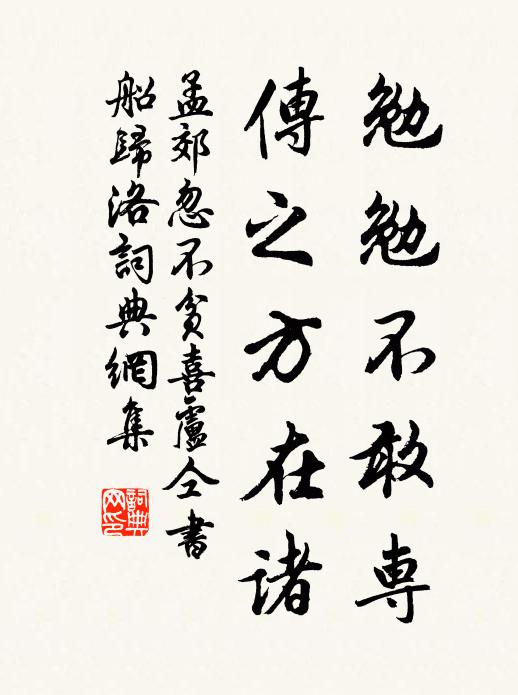 勉勉不敢専
傳之方在诸
孟郊忽不貧喜盧仝書
船歸洛詞典網集
詞典网印